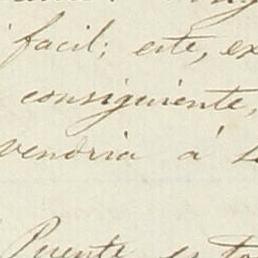 facil; este, ex
consiguiente,
vendria á
Puente es